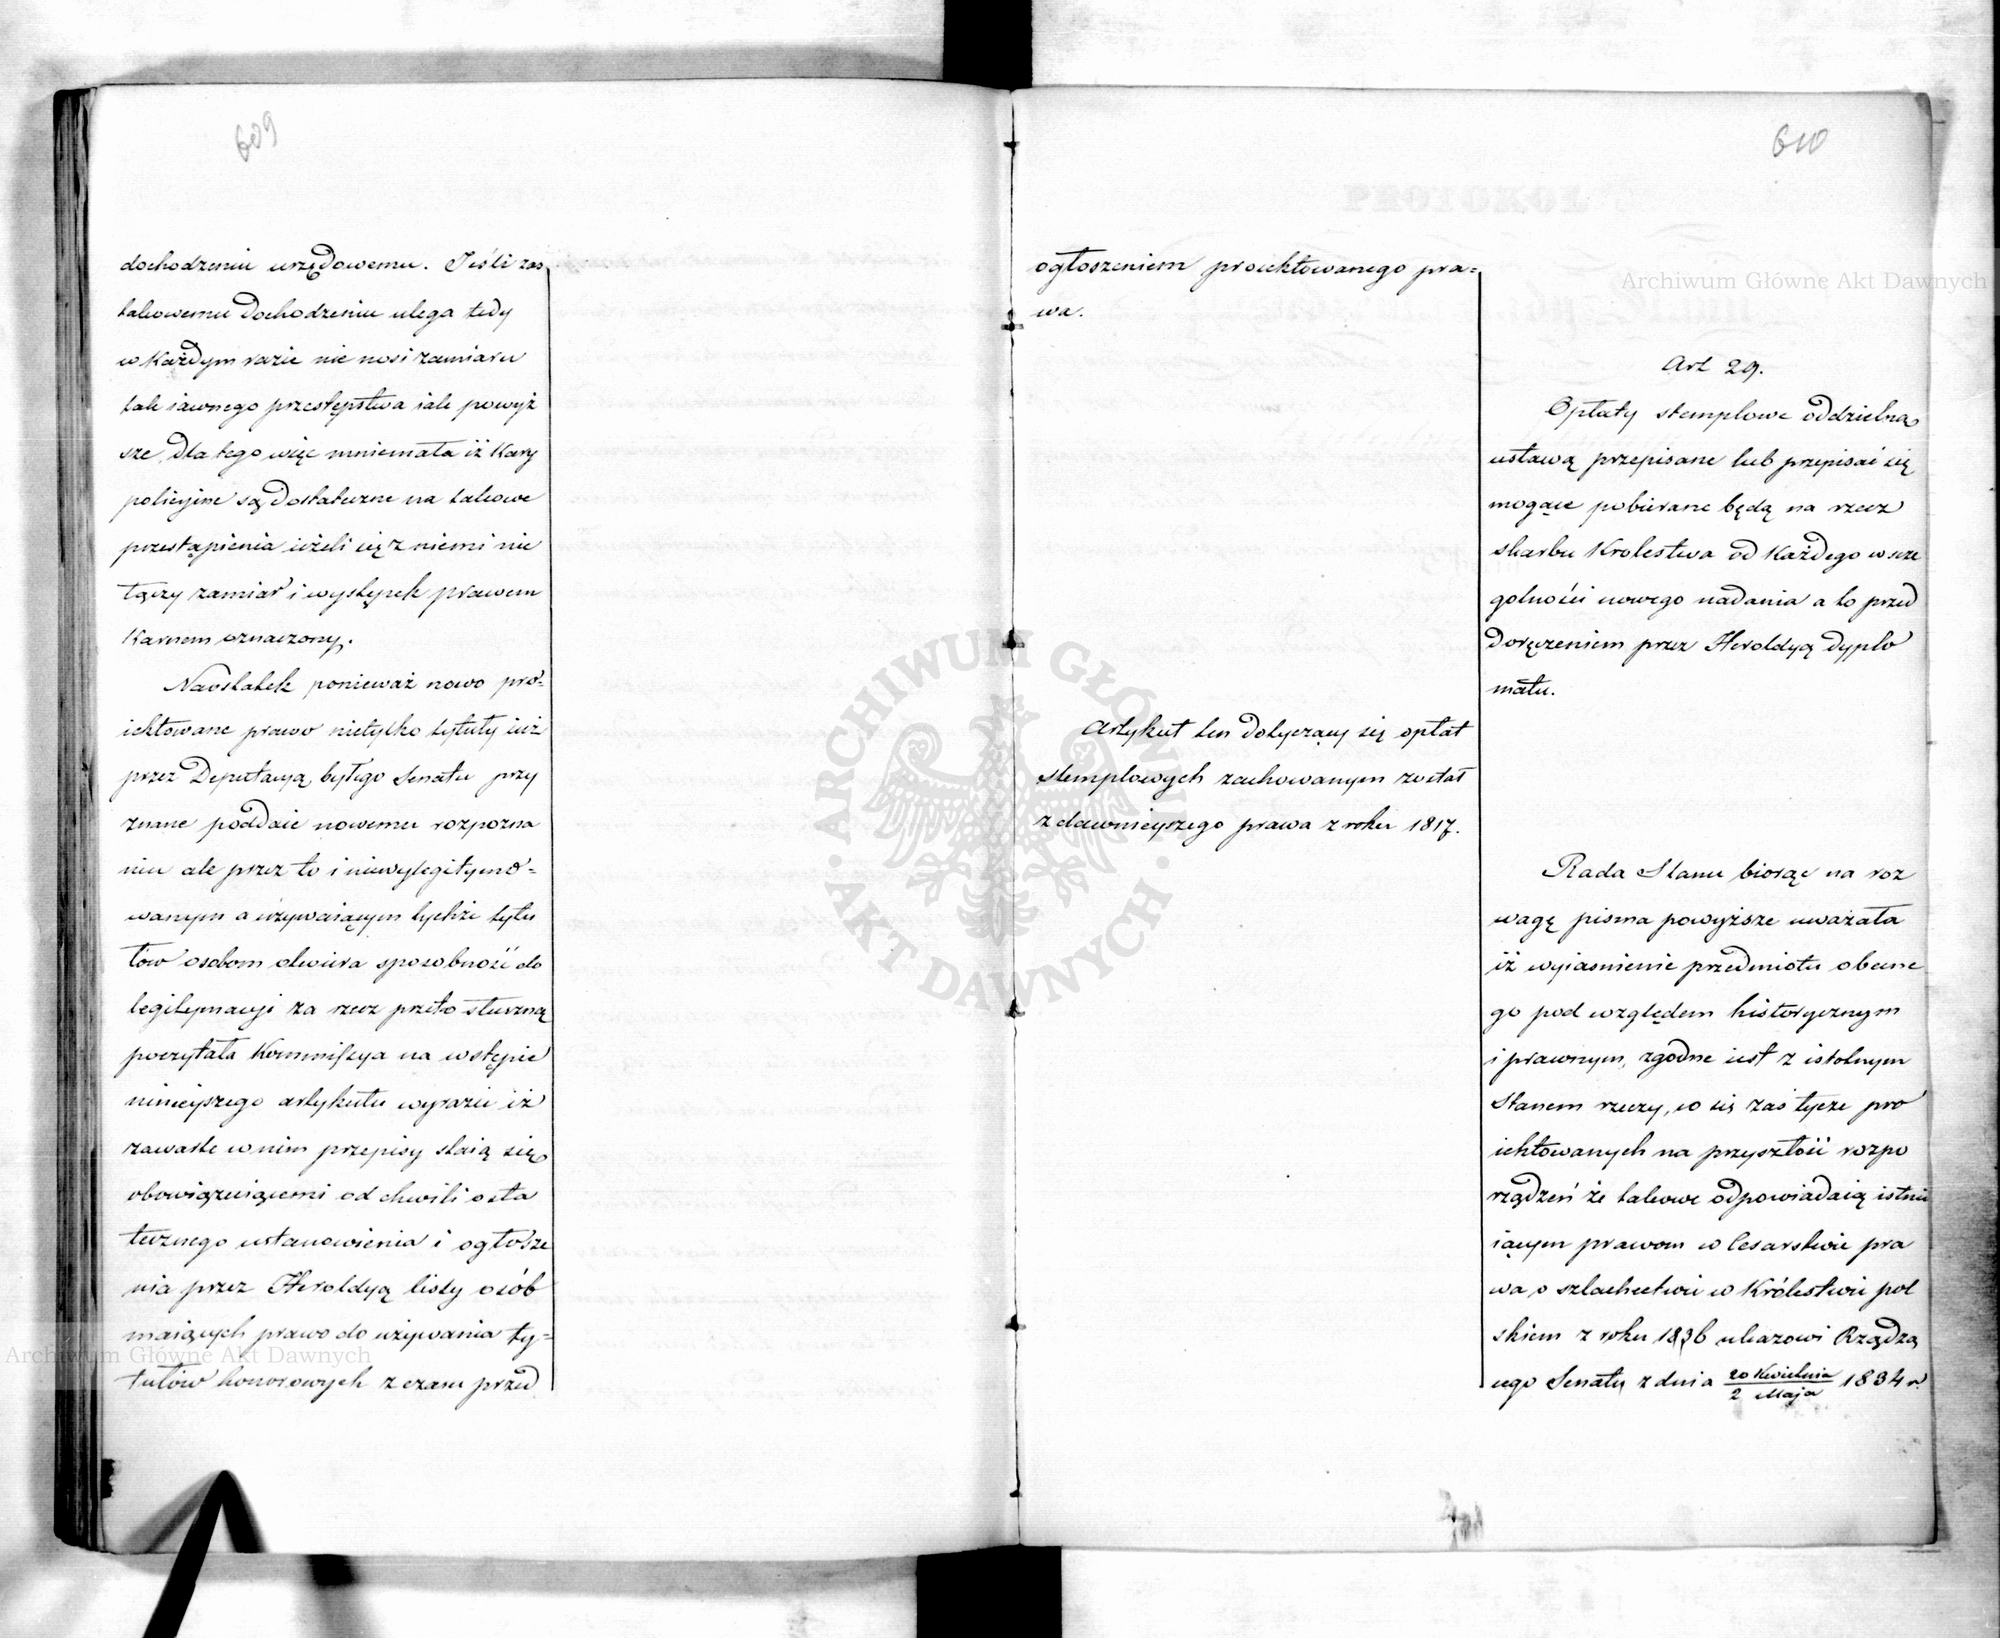 609
dochodzeniu urzędowemu. Jeśli zaś
takowemu dochodzeniu ulega tedy
w każdym razie nie nosi zamiaru
tak iawnego przestępstwa iak powyż
sze, dla tego więc mniemała iż kary
policyine są dostateczne na takowe
przestąpienia ieżeli się z niemi nie
łączy zamiar i występek prawem
karnem oznaczony.
Naostatek ponieważ nowo pro-
iektowane prawo nietylko tytuły iuż
przez Deputacyą byłego Senatu przy
znane poddaie nowemu rozpozna
niu ale przez to i niewylegitymo-
wanym a używaiącym tychże tytu
łów osobom otwiera sposobność do
legitymacyi za rzecz przeto słuszną
poczytała Kommissya na wstępie
ninieyszego artykułu wyrazić iż
zawarte w nim przepisy staią się
obowiązuiącemi od chwili osta
tecznego ustanowienia i ogłosze
nia przez Heroldyą listy osób
maiących prawo do używania ty-
tułów honorowych z czasu przed
610
ogłoszeniem proiektowanego pra-
wa.
Art 29.
Opłaty stemplowe oddzielną
ustawą przepisane lub przepisać się
mogące pobierane będą na rzecz
skarbu Krolestwa od każdego w szcze
golności nowego nadania a to przed
doręczeniem przez Heroldyą dyplo
matu.
Artykuł ten dotyczący się opłat
stemplowych zachowanym został
z dawnieyszego prawa z roku 1817.
Rada Stanu biorąc na roz
wagę pisma powyższe uważała
iż wyiasnienie przedmiotu obecne
go pod względem historycznym
i prawnym, zgodne iest z istotnym
stanem rzeczy, co się zaś tycze pro
iektowanych na przyszłość rozpo
rządzeń że takowe odpowiadaią istnie
iącym prawom w Cesarstwie pra
wa o szlachectwie w Królestwie pol
skiem z roku 1836 ukazowi Rządzą
cego Senatu z dnia 20 Kwietnia / 2 Maja 1834 r.
Archiwum Główne Akt Dawnych
Archiwum Główne Akt Dawnych
ARCHIWUM GŁÓWNE · AKT DAWNYCH ·